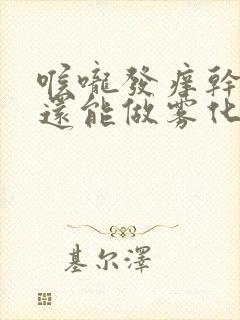 喉嚨發痒幹
還能做雾化
基尔澤